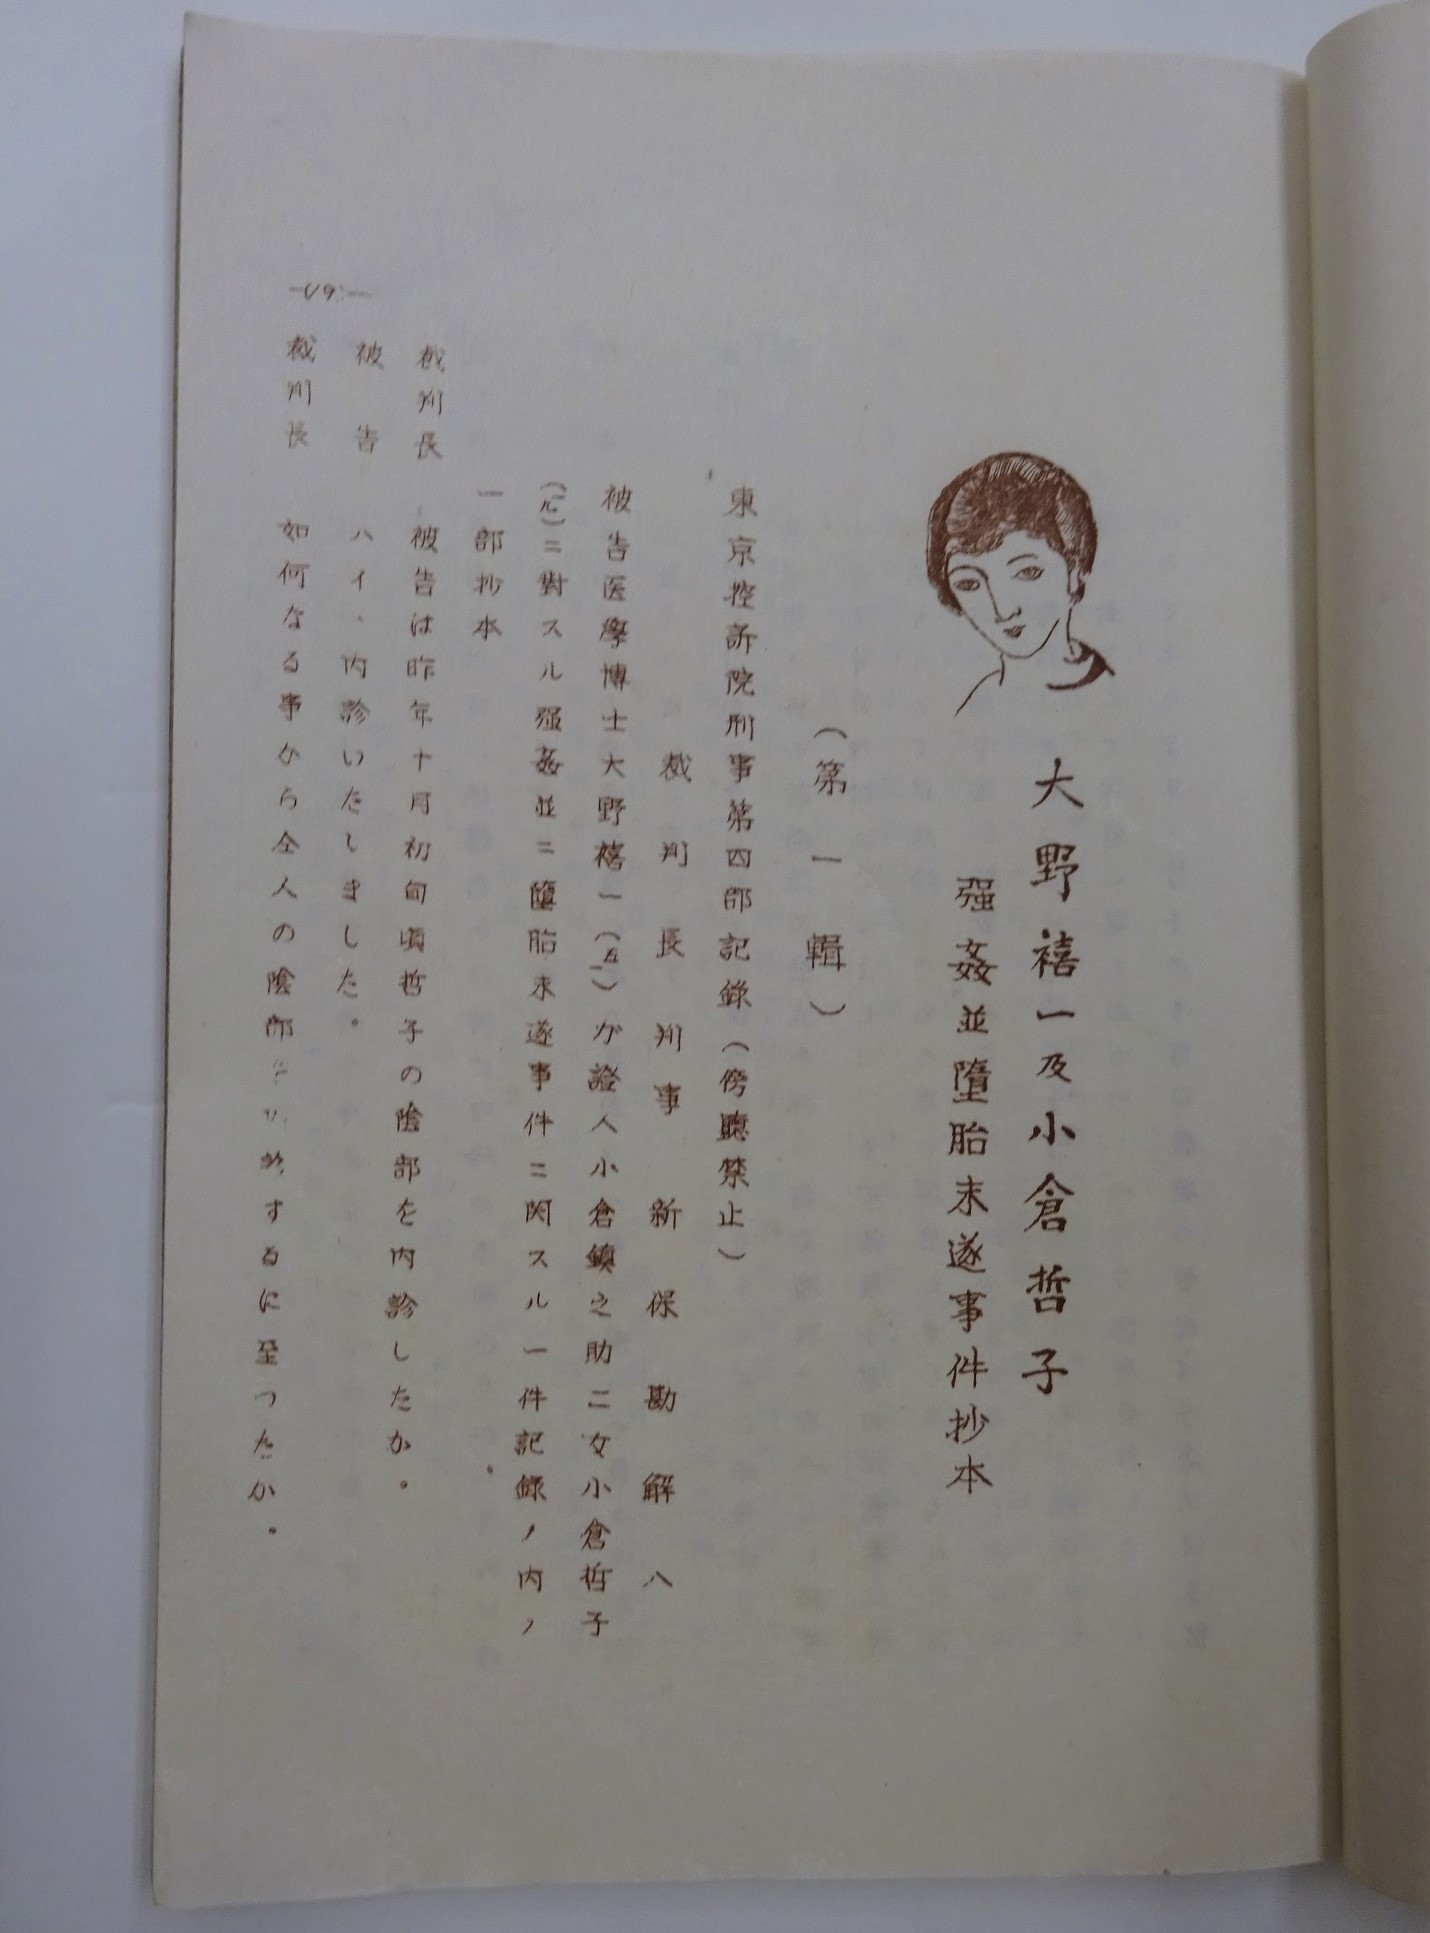 大野禧一及小倉哲子
强姦並墮胎未遂事件抄本
(第一輯)
東京控訴院刑事第四部記録(傍聽禁止)
裁判長判事新保勘解人
被告医學博士大野禧一(五一)が證人小倉鎮之助二女小倉哲子
(一九)ニ對スル强姦並ニ墮胎未遂事件ニ関スル一件記録ノ内ノ
一部抄本
裁判長 被告は昨年十月初旬頃哲子の陰部を内診したか。
被告 ハイ、内診いたしました。
裁判長 如何なる事から仝人の陰部するに至つたか。
—(19)—